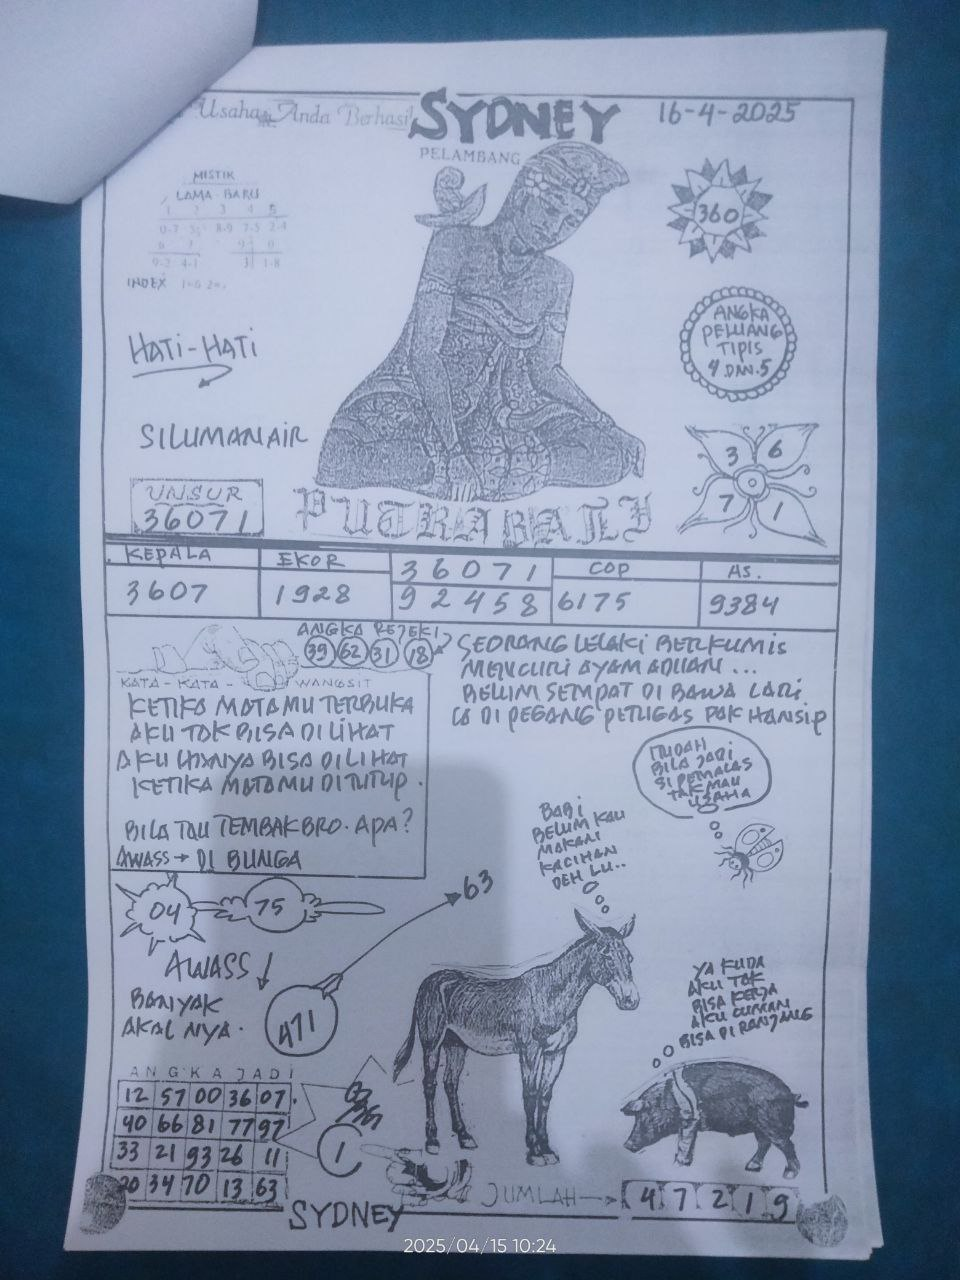 Usaha Anda Berhasil
SYDNEY
16-4-2025
PELAMBANG
MISTIK
LAMA - BARU
1 2 3 4 5
0-7 8-9 7-5 2-4
9-2 4-1 3 1-8
INDEX 1-6
360
ANGKA
PELUANG
TIPIS
4 DAN.5
HATI-HATI
SILUMAN AIR
3 6
7 1
UNSUR
36071
PUTRA BALI
KEPALA EKOR 36071 COP AS.
3607 1928 92458 6175 9384
ANGKA REJEKI
39 62 31 18
SEORANG LELAKI BERKUMIS
MENCURI AYAM ADUAN ...
BELUM SEMPAT DI BAWA LARI
IA DI PEGANG PETUGAS PAK HANSIP
KATA - KATA - WANGSIT
KETIKA MATAMU TERBUKA
AKU TAK BISA DILIHAT
AKU HANYA BISA DILIHAT
KETIKA MATAMU DITUTUP.
BILA TAU TEMBAK BRO. APA?
AWASS → DI BUNGA
MUDAH
BILA JADI
SI PEMALAS
TAK MAU
USAHA
BABI
BELUM KAU
MAKAN
KACIHAN
DEH LU..
04 75
63
AWASS ↓
BANYAK
AKAL NYA.
471
YA KUDA
AKU TAK
BISA KERJA
AKU CUMAN
BISA DI RANJANG
ANGKA JADI
12 57 00 36 07
40 66 81 77 97
33 21 93 26 11
20 34 70 13 63
1
JUMLAH → 4 7 2 1 9
SYDNEY
2025/04/15 10:24